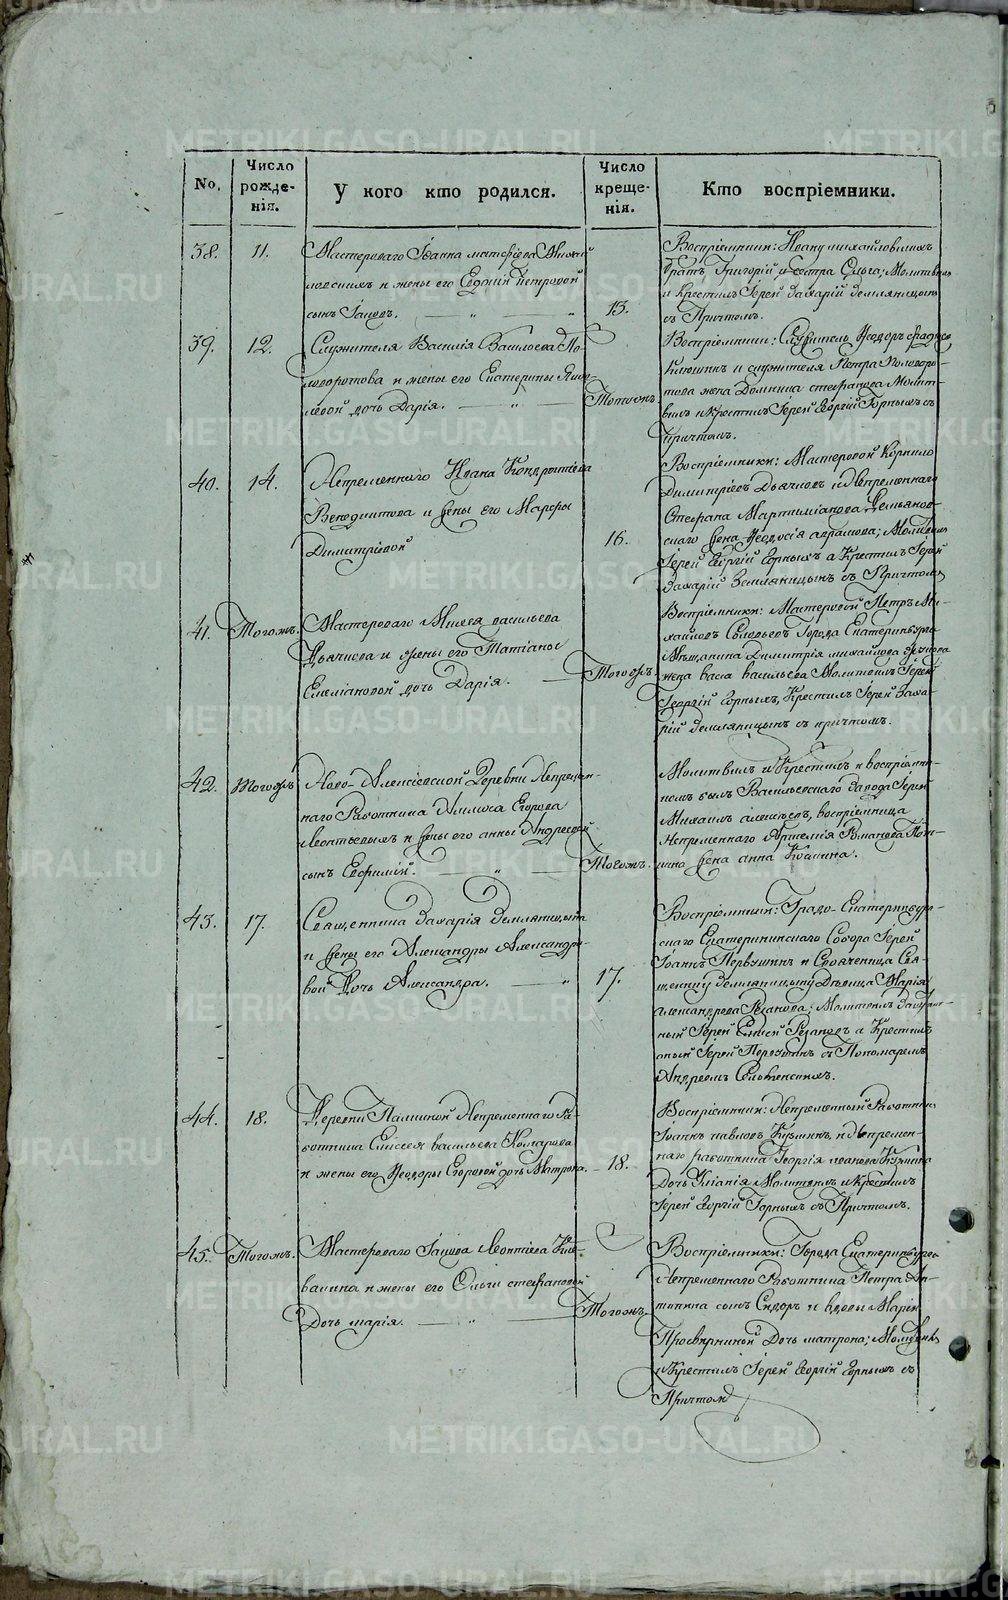 No.
Число рожде-нія.
У кого кто родился.
Число креще-нія.
Кто воспріемники.
38.
11.
Мастероваго Іоанна Матфіева Михай
ловскихъ и жены его Евдокіи Петровой
сынъ Іаковъ.
13.
Воспріемники: Ивану Михайловскихъ
братъ Григорій и сестра Ольга; Молитвилъ
и Крестилъ Іерей Захарій Земляницынъ
съ Причтомъ.
39.
12.
Служителя Василія Васильева По-
ловоротова и жены его Екатерины Яков
левой дочь Дарія.
Тогожъ
Воспріемники: Служитель Ѳеодоръ
Клюшинъ и служителя Петра Половоро-
това жена Домника Стефанова Молит-
вилъ и Крестилъ Іерей Георгій Горныхъ съ
Причтомъ.
40.
14.
Непременнаго Ивана Кондратьева
Венедиктова и жены его Марфы
Димитріевой
16.
Воспріемники: Мастеровой Корнило
Димитріевъ Дьячковъ и Непременнаго
Стефана Мартиміанова Демьянов-
скаго жена Ѳеодосія Аврамова; Молитвилъ
Іерей Георгій Горныхъ а Крестилъ Іерей
Захарій Земляницынъ съ Причтомъ
41.
Тогожъ.
Мастероваго Михея Васильева
Дьячкова и жены его Татіаны
Емеліановой дочь Дарія.
Тогожъ.
Воспріемники: Мастеровой Петръ Ми-
хайловъ Соловьевъ Города Екатеринбурга
Мѣщанина Димитрія Михайлова
жена Васса Васильева Молитвилъ Іерей
Георгій Горныхъ, Крестилъ Іерей Заха-
рій Земляницынъ съ причтомъ.
42.
Тогожъ
Ново-Алексіевской Деревни Непремен-
наго Работника Егорова
Леонтьевыхъ и жены его Анны Андреевой
сынъ Евфимій.
Тогожъ.
Молитвилъ и Крестилъ и воспріемни-
комъ былъ Васильевскаго завода Іерей
Михаилъ Алексіевъ, воспріемница
Непременнаго Артемія Романова
жена Анна Козмина.
43.
17.
Священника Захарія Земляницына
и жены его Александры Александро-
вой Дочь Александра.
17.
Воспріемники: Градо-Екатеринбург-
скаго Екатерининскаго Собора Іерей
Іоаннъ Первушинъ и Свояченица Свя-
щеннику Земляницыну Дѣвица Марія
Александрова Рязанова; Молитвилъ
Іерей Рязановъ а Крестилъ
оный Іерей Первушинъ съ Пономаремъ
Андреемъ
44.
18.
Деревни Палкиной Непременнаго Ра-
ботника Елисея Васильева Комарова
и жены его Ѳеодоры Егоровой дочь Матрона.
18.
Воспріемники: Непременный Работник
Іоаннъ Павловъ Кузминъ и Непремен-
наго работника Георгія Иванова Кузмина
Дочь Уліанія Молитвилъ и Крестилъ
Іерей Георгій Горныхъ съ Причтомъ.
45.
Тогожъ.
Мастероваго Іакова Леонтіева Кле-
вакина и жены его Ольги Стефановой
Дочь Марія.
Тогожъ
Воспріемники: Города Екатеринбурга
Непременнаго Работника Петра Ан-
типина сынъ Сидоръ и вдовы Маріи
Просвирниной Дочь Матрона; Молитвилъ
и Крестилъ Іерей Георгій Горныхъ съ
Причтом
METRIKI.GASO-URAL.RU